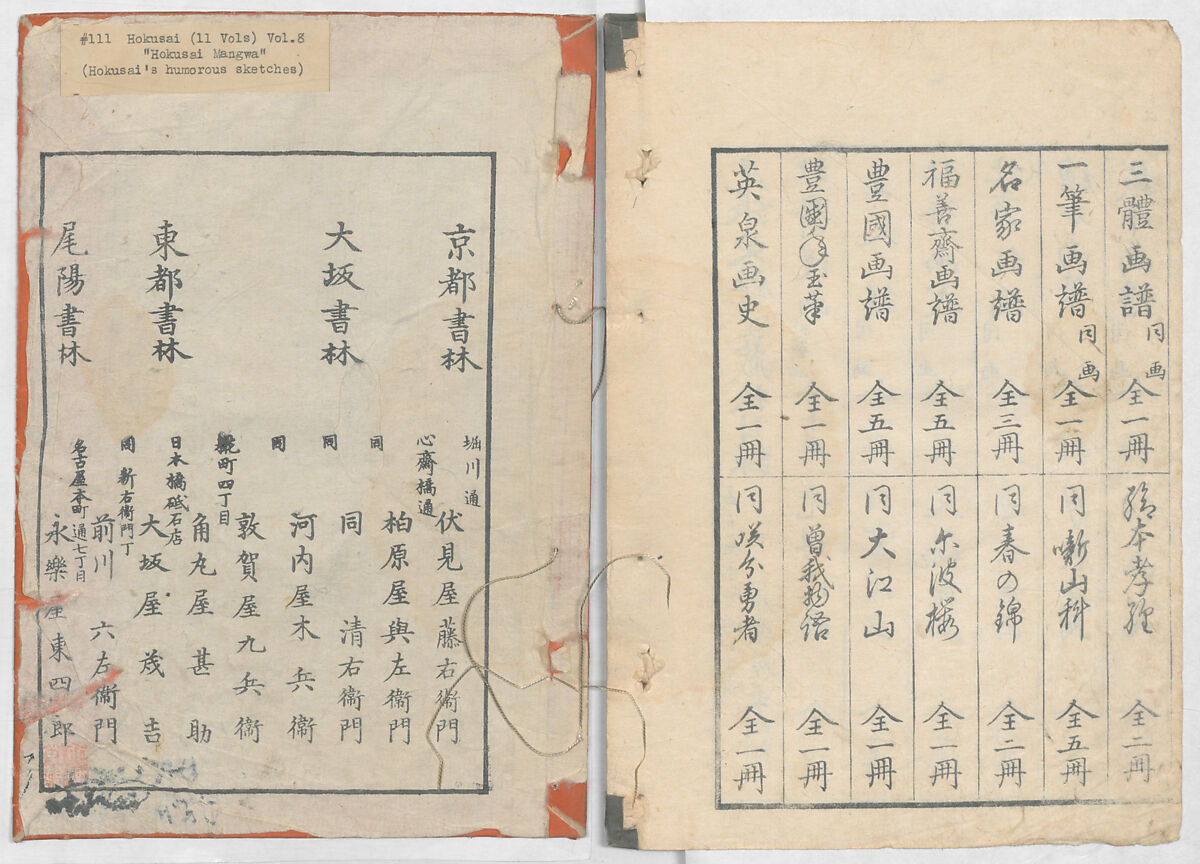 #111 Hokusai (11 Vols) Vol.8
"Hokusai Mangwa"
(Hokusai's humorous sketches)
三體画譜 同画 全一冊
一筆画譜 同画 全一冊
名家画譜 全三冊
福善齋画譜 全五冊
豊國画譜 全五冊
豊國年玉筆 全一冊
英泉画史 全一冊
絵本孝経 全二冊
同 噺山科 全五冊
同 春の錦 全二冊
同 尓波桜 全一冊
同 大江山 全一冊
同 曽我物語 全一冊
同 咲分勇者 全一冊
京都書林 堀川通 伏見屋藤右衞門
大坂書林 心齋橋通 柏原屋與左衞門
同 同 清右衞門
同 河内屋木兵衞
同 敦賀屋九兵衞
東都書林 麹町四丁目 角丸屋甚助
日本橋砥石店 大坂屋茂吉
同 新右衞門丁 前川六左衞門
尾陽書林 名古屋本町通七丁目 永樂屋東四郎